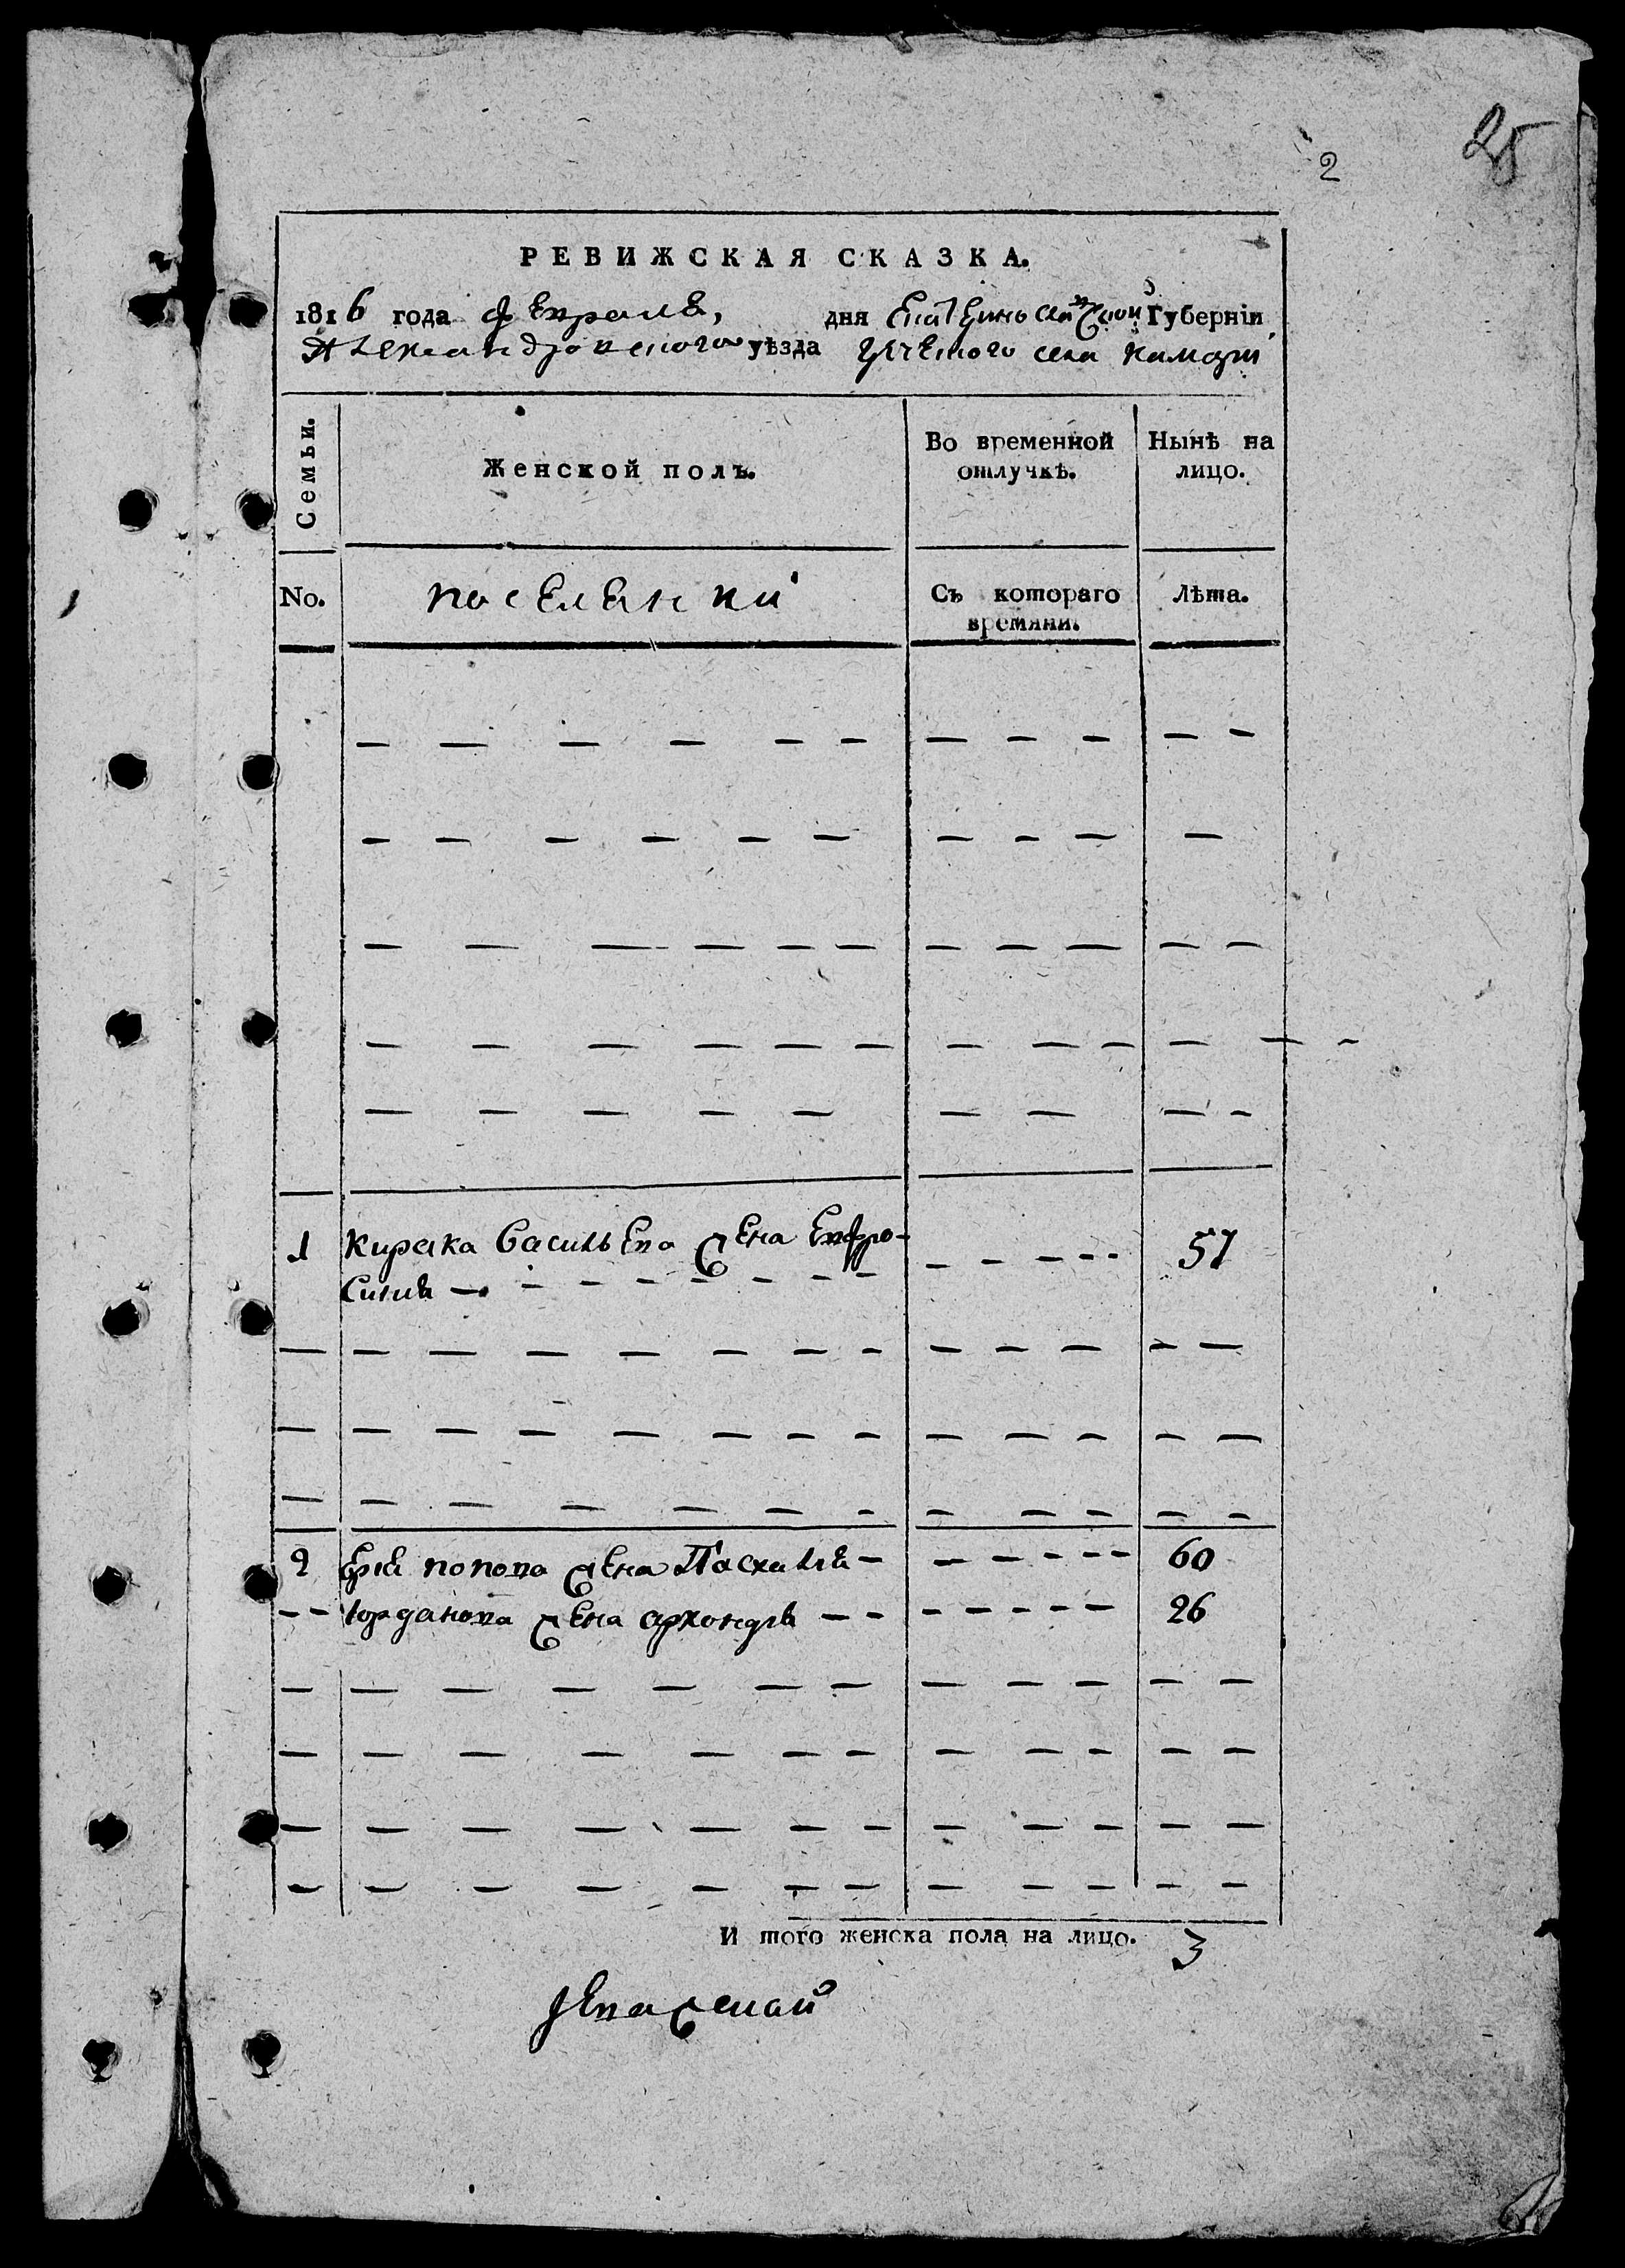 25
2
РЕВИЖСКАЯ СКАЗКА.
1816 года февраля, дня Екатеринославской Губерніи
Александровского уѣзда греческого села камари
Семьи.
Женской полъ.
Во временной отлучкѣ.
Нынѣ на лицо.
No.
поселенки
Съ котораго времяни.
лѣта.
1 Кирака васильева жена Евфро- 57
синия
2 попова жена Пасхалия 60
юрданова жена архондия 26
И того женска пола на лицо. 3